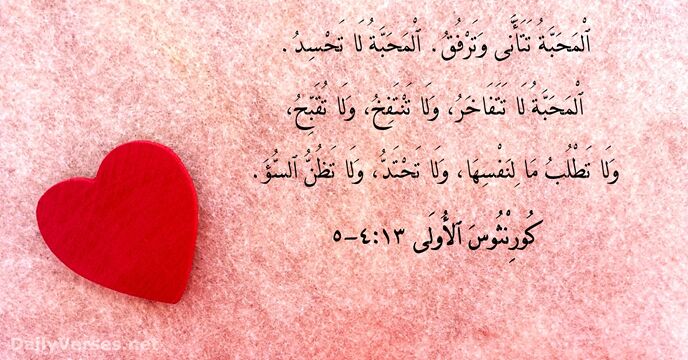 ٱلْمَحَبَّةُ تَتَأَنَّى وَتَرْفُقُ. ٱلْمَحَبَّةُ لَا تَحْسِدُ.
ٱلْمَحَبَّةُ لَا تَتَفَاخَرُ، وَلَا تَنْتَفِخُ، وَلَا تُقَبِّحُ،
وَلَا تَطْلُبُ مَا لِنَفْسِهَا، وَلَا تَحْتَدُّ، وَلَا تَظُنُّ ٱلسُّؤَ.
كُورِنْثُوسَ ٱلأُولَى ١٣:٤-٥
DailyVerses.net